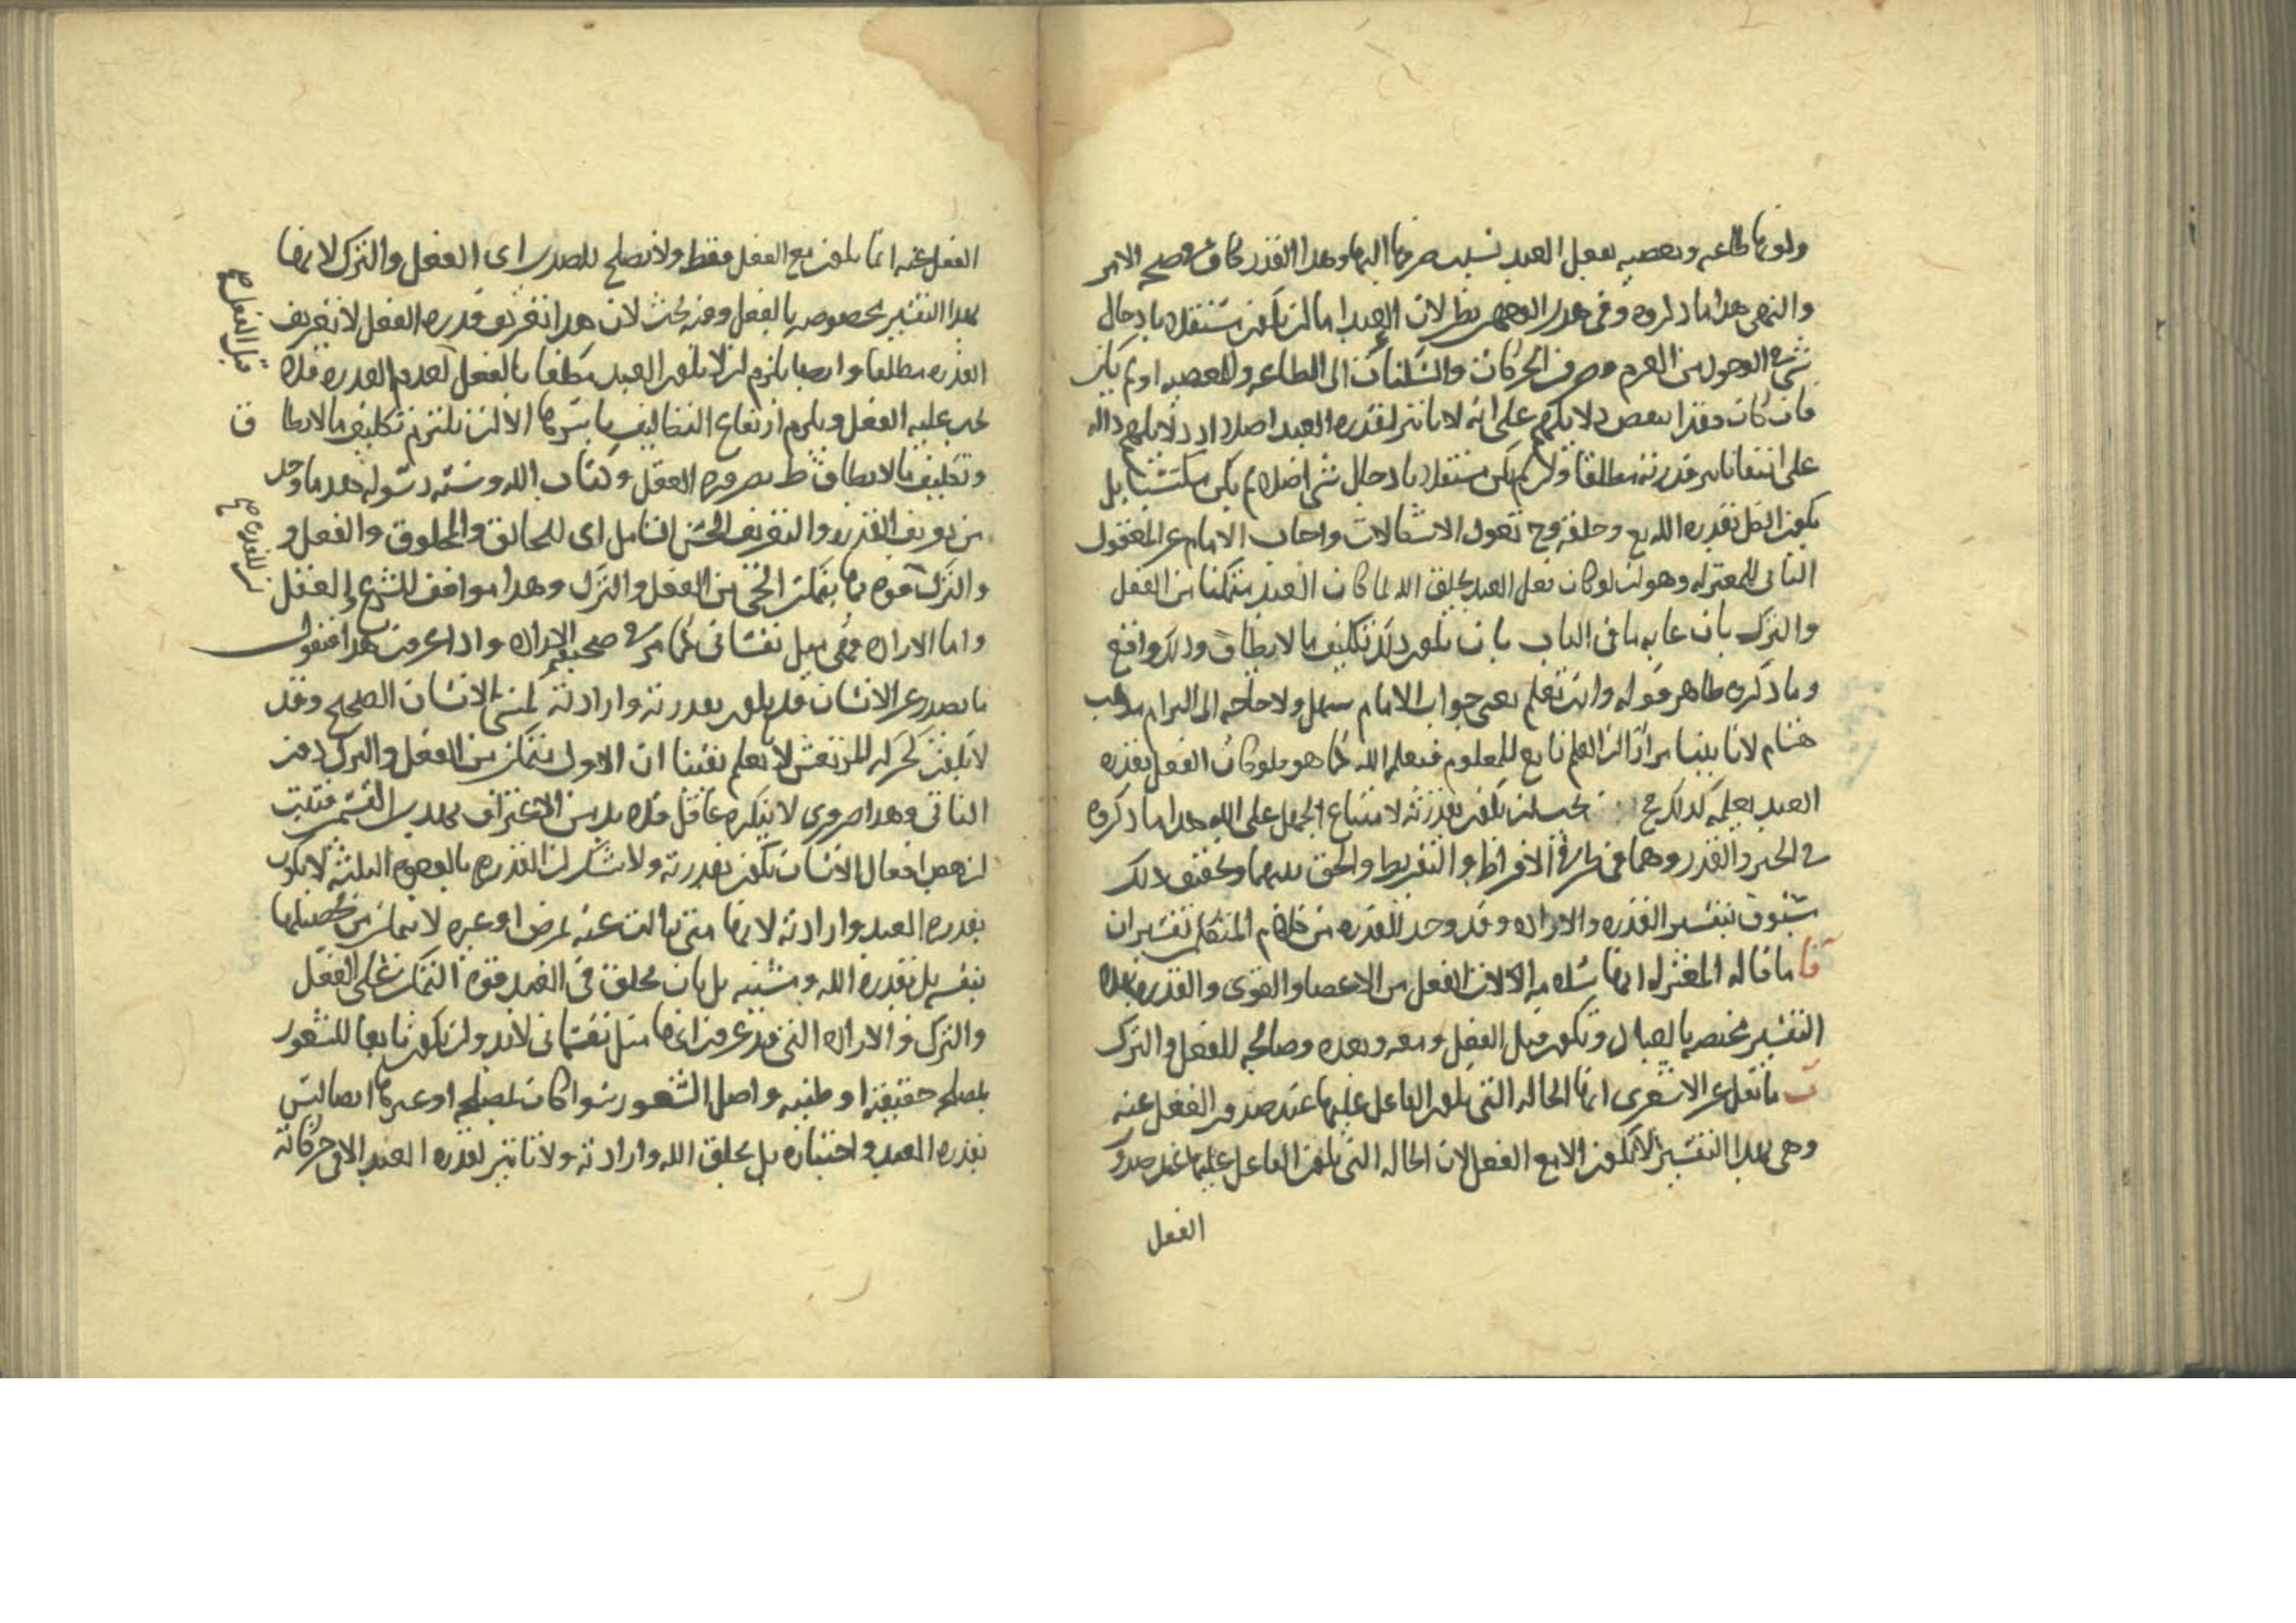 وكونها طاعه ومعصيه بفعل العبد بسبب صرفها اليها وهذا القدر كاف في صحه الامر
والنهي هذا ما ذكروه وفي هذين الوجهين نظر لان العبد اما ان يكون مستقلا بادخال
شيء في الوجود من العزم وصرف الحركات والسكنات الى الطاعه والمعصيه او لم يكن
فان كان فقد انتقض دلايلهم على انه لا تاثير لقدره العبد اصلا اذ دلايلهم داله
على انتفا تاثير قدرته مطلقا وان لم يكن مستقلا بادخال شي اصلا لم يكن مكتسبا بل
يكون الكل بقدره الله تع وخلقه وح تعود الاشكالات واجاب الامام عن المعقول
الثاني للمعتزله وهو ان لو كان فعل العبد بخلق الله لما كان العبد متمكنا من الفعل
والترك بان غايه ما في الباب بان يكون ذلك تكليف ما لا يطاق وذلك واقع
وما ذكروه ظاهر قوله وانت تعلم يعني جواب الامام سهل ولا حاجه الى التزام مذهب
هشام لانا بينا مرارا ان العلم تابع للمعلوم فيعلم الله كما هو فلو كان الفعل بقدره
العبد يعلمه كذلك ح يجب ان يكون بقدرته لامتناع الجهل على الله هذا ما ذكروه
في الجبر والقدر وهما في طرفي الافراط والتفريط والحق بينهما وتحقيق ذلك
مسبوق بتفسير القدره والاراده وقد وجد للقدره من كلام المتكلمين تفسيران
آ ما قاله المعتزله انها سلامه الالات الفعل من الاعضا والقوى والقدره بهذا
التفسير مختصه بالحيوان وتكون قبل الفعل ومعه وبعده وصالحه للفعل والترك
ب ما نقل عن الاشعري انها الحاله التي يكون الفاعل عليها عند صدور الفعل عنه
وهي بهذا التفسير لا تكون الا مع الفعل لان الحاله التي يكون الفاعل عليها عند صدور
الفعل
الفعل عنه انما يكون مع الفعل فقط ولا تصلح للضدين اى الفعل والترك لانها
بهذا التفسير مخصوصه بالفعل وفيه بحث لان هذا تعريف قدره الفعل لا تعريف
القدره مطلقا وايضا يلزم ان لا يكون العبد مكلفا بالفعل لعدم القدره فلا
يجب عليه الفعل ويلزم ارتفاع التكاليف باسرها الا ان يلتزم تكليف ما لا يطاق
وتكليف ما لا يطاق بط بضروره العقل وكتاب الله وسنه رسوله فهذا ما وجد
من تعريف القدره والتعريف الحسن الشامل اى للخالق والمخلوق والفعل و
والترك قوه بها يتمكن الحي من الفعل والترك وهذا موافق للشرع والعقل
واما الاراده فهي ميل نفساني كما مر في صحيفه الاراده واذا عرفت هذا فنقول
ما يصدر عن الانسان قد يكون بقدرته وارادته كمشي الانسان الصحيح وقد
لا يكون كحركه المرتعش لانا نعلم يقينا ان الاول متمكن من الفعل والترك دون
الثاني وهذا ضروري لا ينكره عاقل فلا بد من الاعتراف بهذين القسمين فثبت
ان بعض افعال الانسان يكون بقدرته ولا شك ان القدره بالوجوه الثلثه لا يكون
بقدره العبد وارادته لانها متى زالت عنه لمرض او غيره لا يتمكن من تحصيلها
بنفسه بل بقدره الله ومشيته بل بان يخلق في العبد قوه التمكن على الفعل
والترك والاراده التي قد عرفت انها ميل نفساني لا بد وان يكون تابعا للشعور
بمصلحه حقيقيه او ظنيه واصل الشعور سواء كان بمصلحه او غيرها ايضا ليس
بقدره العبد واختياره بل بخلق الله وارادته ولا تاثير لقدره العبد الا في حركاته
قبل الفعل صح
ق